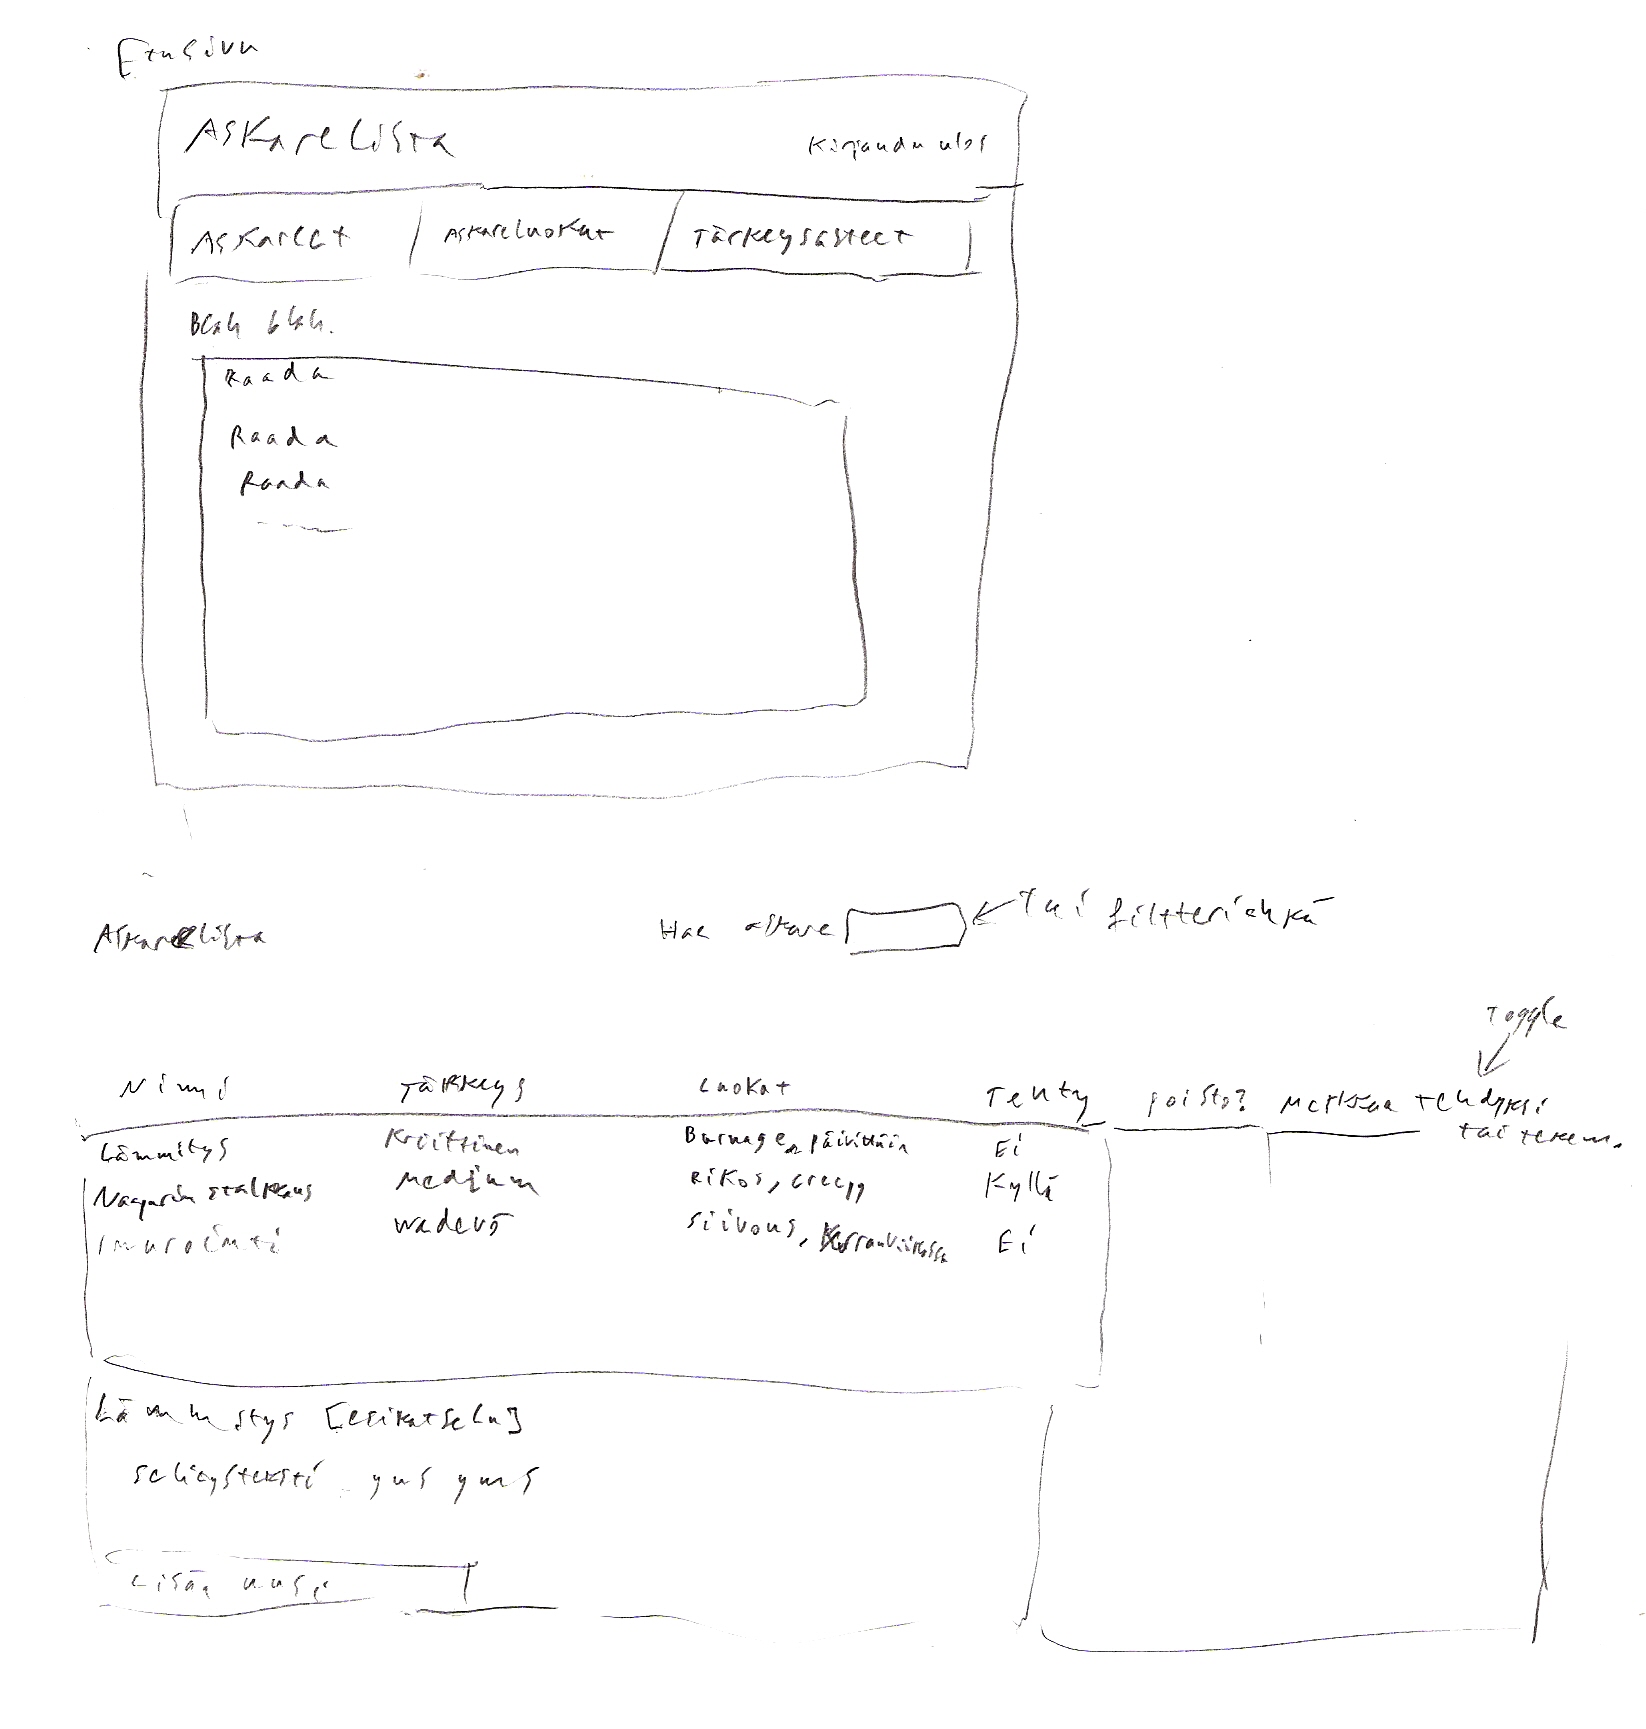 Etusivu
Askarelista
Kirjaudu ulos
Askareet
Askareluokat
Tärkeysasteet
Blah blah.
Raada
Raada
Raada
Askarelista
Hae askare
Tai filtteriehkä
Toggle
Nimi
Tärkeys
Luokat
Tehty
poisto?
Merkkaa tehdyksi
tai tekem.
Lämmitys
Kriittinen
päivittäin
Ei
Naapurin stalkkaus
Medium
Rikos, creepy
Kyllä
Imurointi
wadevö
Siivous, Kerran viikossa
Ei
Lämmitys [esikatselu]
selitysteksti yms yms
Lisää uusi